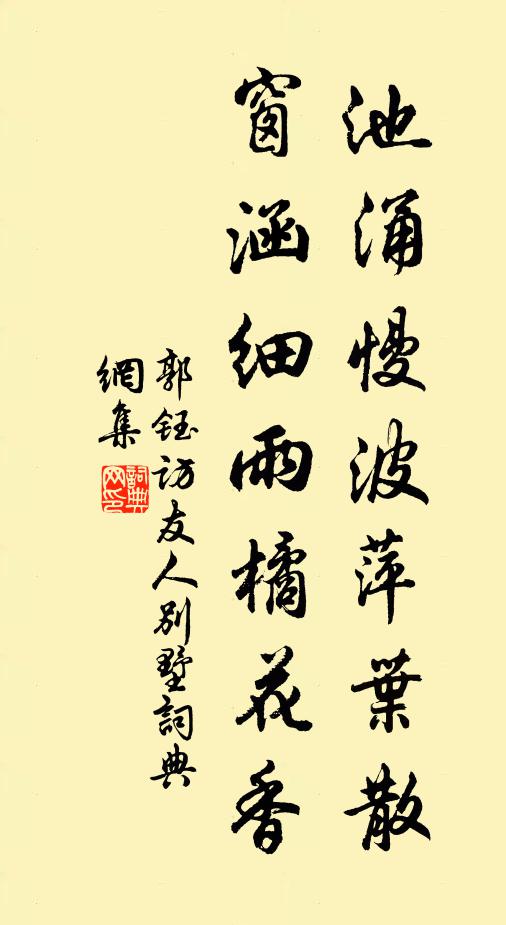 池涌慢波萍葉散
窗涵細雨橘花香
郭鈺訪友人別墅詞典
網集
詞典
网印